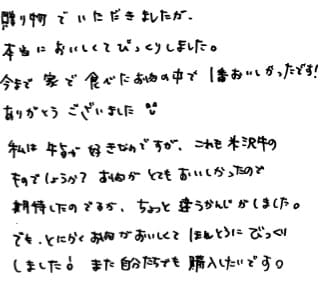 贈り物でいただきましたが、
本当においしくてびっくりしました。
今まで家で食べたお肉の中で1番おいしかったです!
ありがとうございました
私は牛すじが好きなのですが、これも米沢牛の
ものでしょうか? お肉がとてもおいしかったので
期待したのですが、ちょっと違うかんじがしました。
でも、とにかくお肉がおいしくてほんとうにびっくり
しました! また自分たちでも購入したいです。